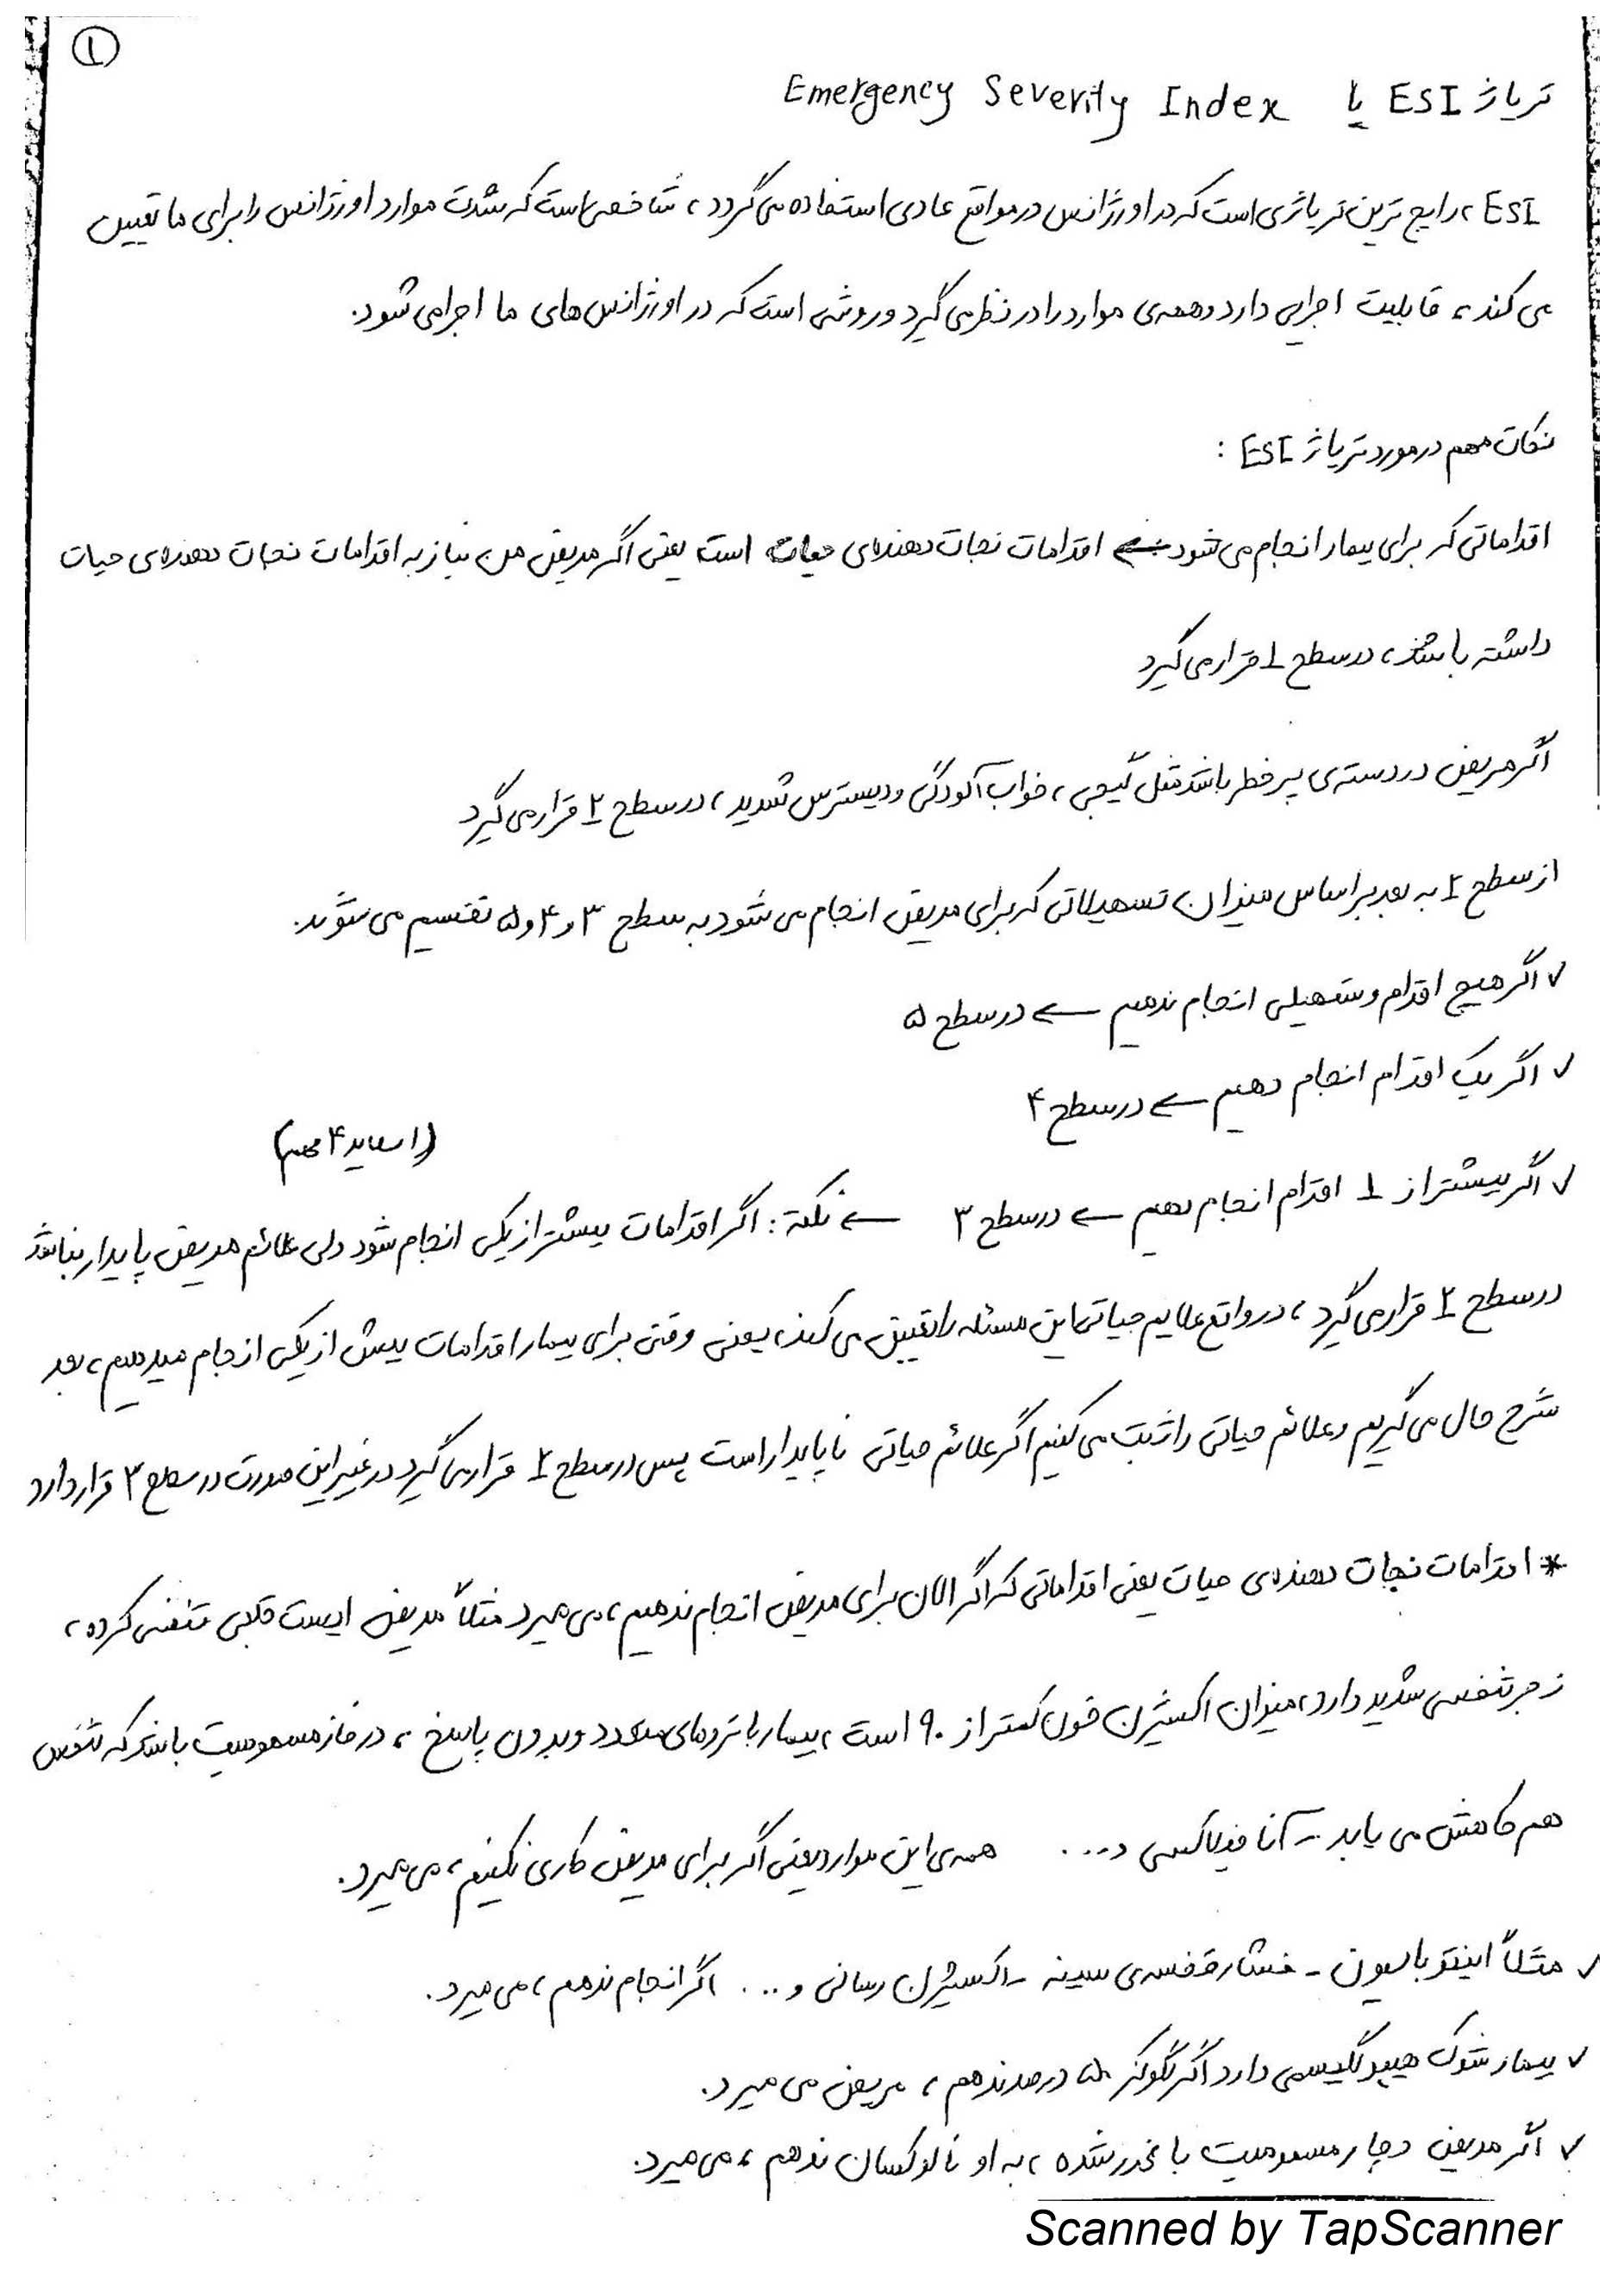 ۱
تریاژ ESI یا Emergency Severity Index
ESI، رایج ترین تریاژی است که در اورژانس در مواقع عادی استفاده می گردد، شاخصی است که شدت موارد اورژانس را برای ما تعیین
می کند، قابلیت اجرایی دارد و همه‌ی موارد را در نظر می گیرد و روشی است که در اورژانس های ما اجرا می شود.
نکات مهم در مورد تریاژ ESI :
اقداماتی که برای بیمار انجام می شود ← اقدامات نجات دهنده‌ی حیات است یعنی اگر مریض من نیاز به اقدامات نجات دهنده‌ی حیات
داشته باشد، در سطح ۱ قرار می گیرد
اگر مریض در دسته‌ی پرخطر باشد مثل گیجی، خواب آلودگی و دیسترس شدید، در سطح ۲ قرار می گیرد
از سطح ۲ به بعد براساس میزان تسهیلاتی که برای مریض انجام می شود به سطح ۳ و ۴ و ۵ تقسیم می شوند.
✓ اگر هیچ اقدام و تسهیلی انجام ندهیم ← در سطح ۵
✓ اگر یک اقدام انجام دهیم ← در سطح ۴
(اسلاید ۴ مهم)
✓ اگر بیشتر از ۱ اقدام انجام دهیم ← در سطح ۳ ← نکته: اگر اقدامات بیشتر از یکی انجام شود ولی علائم مریض پایدار نباشد
در سطح ۲ قرار می گیرد، در واقع علایم حیاتی این مسئله را تعیین می کند، یعنی وقتی برای بیمار اقدامات بیش از یکی انجام میدهیم، بعد
شرح حال می گیریم و علائم حیاتی را ثبت می کنیم اگر علائم حیاتی ناپایدار است پس در سطح ۲ قرار می گیرد در غیر این صورت در سطح ۳ قرار دارد
* اقدامات نجات دهنده‌ی حیات یعنی اقداماتی که اگر الان برای مریض انجام ندهیم، می میرد مثلاً مریض ایست قلبی تنفسی کرده،
زجر تنفسی شدید دارد، میزان اکسیژن خون کمتر از ۹۰ است، بیمار با ترومای متعدد و بدون پاسخ، در فاز مسمومیت باشد که تنفس
هم کاهش می یابد - آنافیلاکسی و... همه‌ی این موارد یعنی اگر برای مریض کاری نکنیم، می میرد.
✓ مثلاً اینتوباسیون - فشار قفسه‌ی سینه - اکسیژن رسانی و... اگر انجام ندهم، می میرد.
✓ بیمار شوک هیپوگلیسمی دارد اگر گلوکز ۵۰ درصد ندهم، مریض می میرد.
✓ اگر مریض دچار مسمومیت با مخدر شده، به او نالوکسان ندهم، می میرد.
Scanned by TapScanner